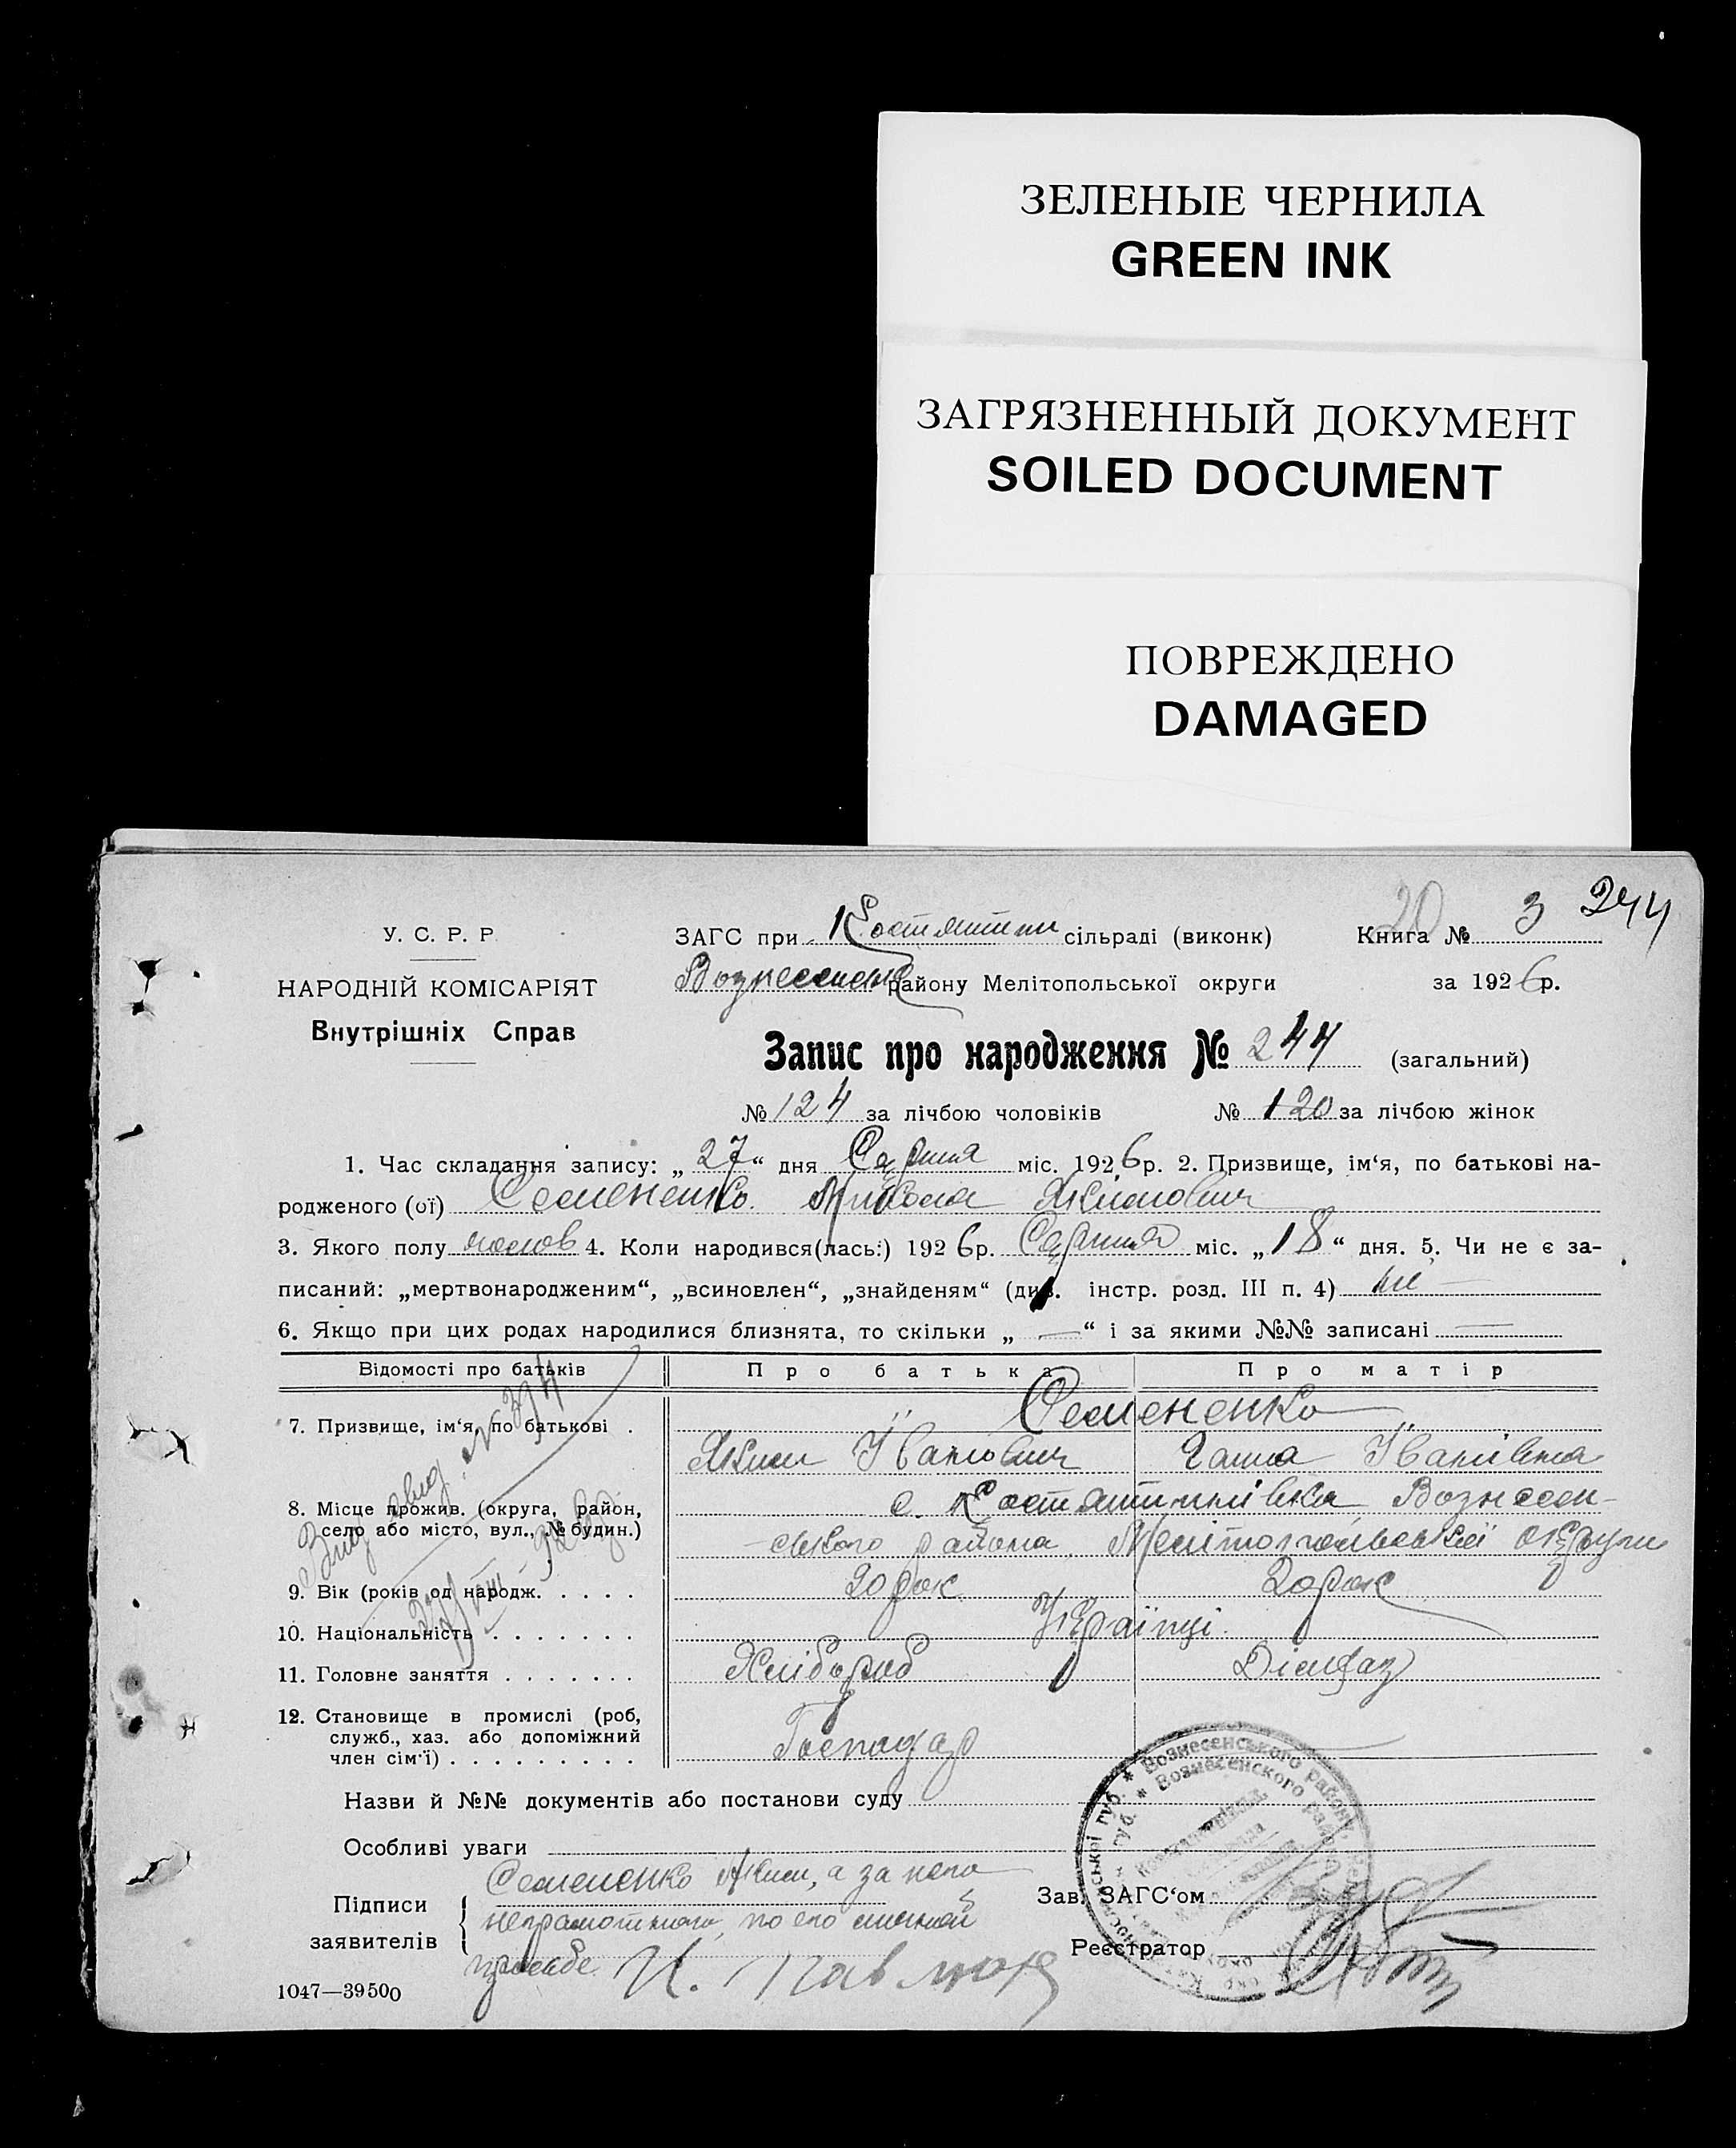 ЗЕЛЕНЫЕ ЧЕРНИЛА
GREEN INK
ЗАГРЯЗНЕННЫЙ ДОКУМЕНТ
SOILED DOCUMENT
ПОВРЕЖДЕНО
DAMAGED
20 3 244
У. С. Р. Р.
НАРОДНІЙ КОМІСАРІЯТ
Внутрішніх Справ
ЗАГС при Костянтин сільраді (виконк)
Книга №
Вознесенськ району Мелітопольської округи
за 1926 р.
Запис про народження № 244 (загальний)
№ 124 за лічбою чоловіків № 120 за лічбою жінок
1. Час складання запису: „27“ дня Серпня міс. 1926 р. 2. Призвище, ім‘я, по батькові на-
родженого (ої) Семененко Микола Якимович
3. Якого полу 4. Коли народився(лась:) 1926 р. Серпня міс. „18“ дня. 5. Чи не є за-
писаний: „мертвонародженим“, „всиновлен“, „знайденям“ (див. інстр. розд. III п. 4) ні —
6. Якщо при цих родах народилися близнята, то скільки „ — “ і за якими №№ записані —
Відомості про батьків Про батька Про матір
7. Призвище, ім‘я, по батькові . „ Семененко „
Яким Іванович Ганна Іванівна
8. Місце прожив. (округа, район,
село або місто, вул., № будин.)
с. Костянтинівка Вознесен-
ського района, Мелітопольської округи
9. Вік (років од народж. . . . . 20 рок 20 рок
10. Національність . . . . . . . Українці.
11. Головне заняття . . . . . . . Хлібороб
12. Становище в промислі (роб,
служб., хаз. або допоміжний
член сім‘ї) . . . . . . . . . Господар
Назви й №№ документів або постанови суду
Особливі уваги
Підписи
заявителів
Семененко Яким, а за него
неграмотного, по его личной
прозьбе И. Павлюк
Зав. ЗАГС‘ом
Реєстратор
Вознесенського району
Вознесенского района
1047—39500